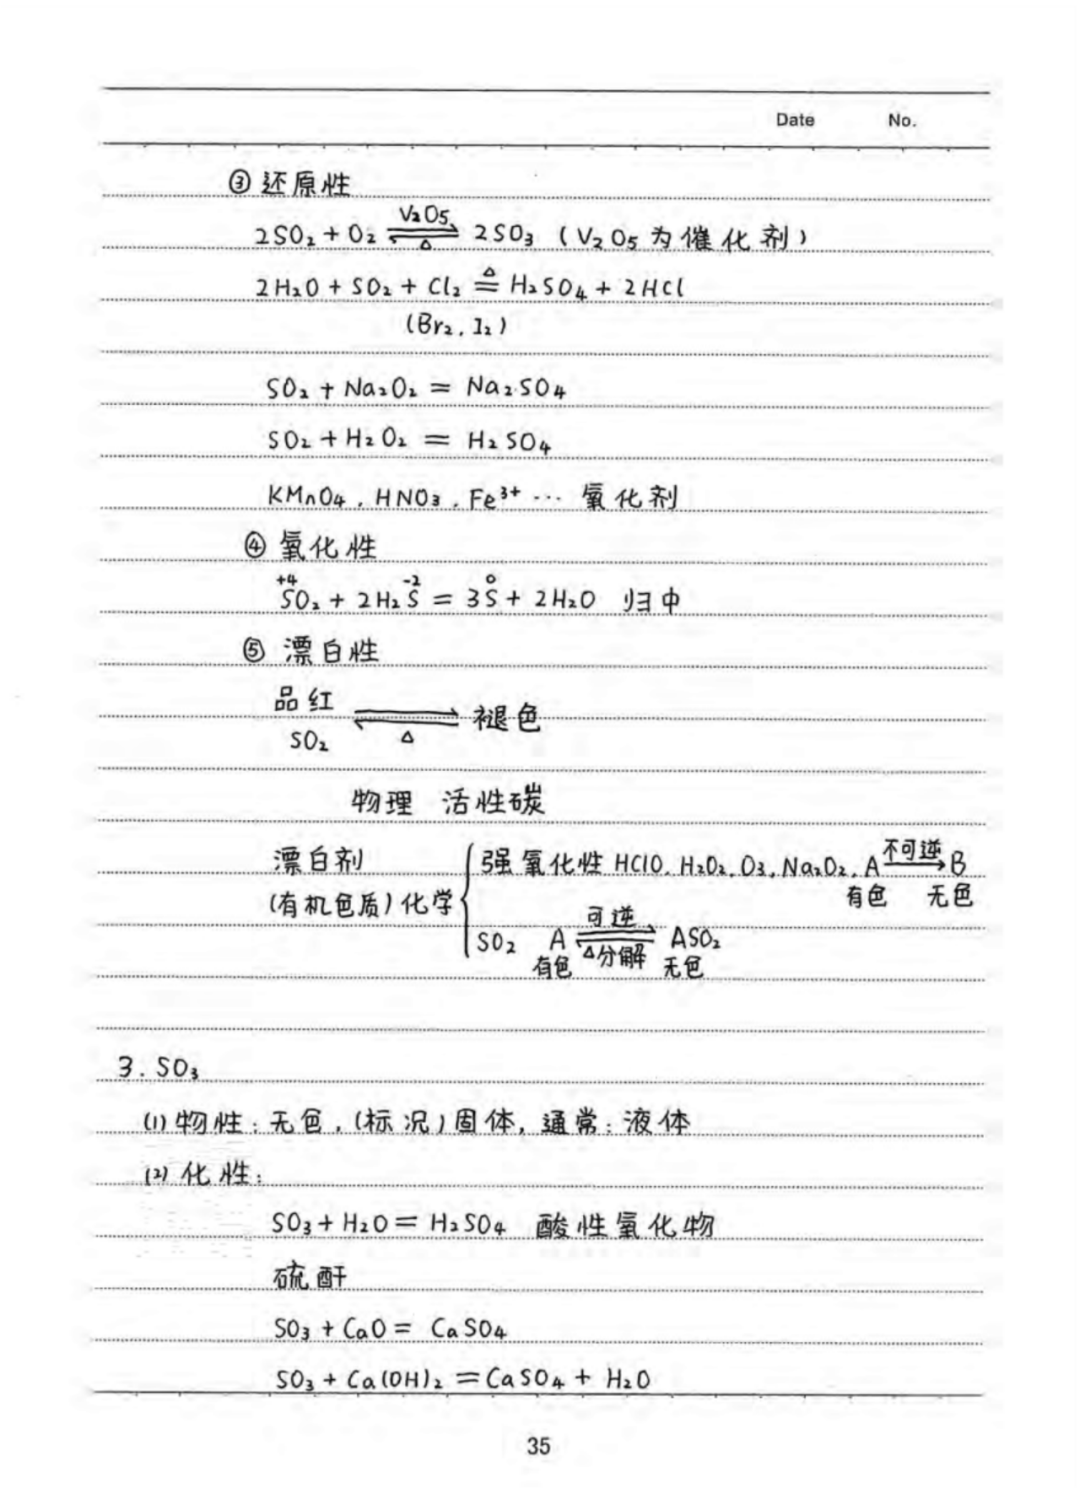 Date No.
③ 还原性
2SO₂ + O₂ ⇌ 2SO₃ (V₂O₅为催化剂)
V₂O₅
△
2H₂O + SO₂ + Cl₂ ≜ H₂SO₄ + 2HCl
(Br₂, I₂)
SO₂ + Na₂O₂ = Na₂SO₄
SO₂ + H₂O₂ = H₂SO₄
KMnO₄, HNO₃, Fe³⁺ ··· 氧化剂
④ 氧化性
+4 -2 0
SO₂ + 2H₂S = 3S + 2H₂O 归中
⑤ 漂白性
品红
SO₂ ⇌ 褪色
△
物理 活性碳
漂白剂
(有机色质) 化学
强氧化性 HClO, H₂O₂, O₃, Na₂O₂, A 不可逆→ B
有色 无色
可逆
SO₂ A ⇌ ASO₂
有色 △分解 无色
3. SO₃
(1) 物性: 无色, (标况)固体, 通常: 液体
(2) 化性:
SO₃ + H₂O = H₂SO₄ 酸性氧化物
硫酐
SO₃ + CaO = CaSO₄
SO₃ + Ca(OH)₂ = CaSO₄ + H₂O
35